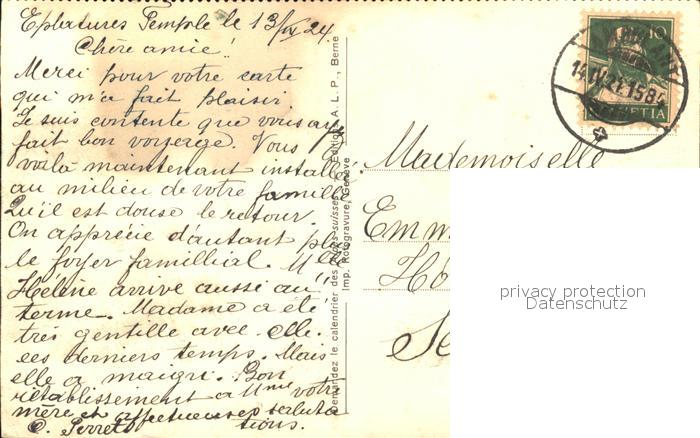 Eplatures Temple le 13/IV 24
Chère amie!
Merci pour votre carte
qui m'a fait plaisir
Je suis contente que vous ayez
fait bon voyage. Vous
voilà maintenant installée
au milieu de votre famille
Qu'il est douse le retour.
On apprécie d'autant plus
le foyer famillial. Mlle
Hélène arrive aussi au
terme. Madame a été
très gentille avec elle.
ces derniers temps. Mais
elle a maigri. Bon
rétablissement a Mme votre
mère et affectueuses saluta
C. Perret tions.
Demandez le calendrier des Alpes suisses Editions A. L. P., Berne
Imp. Rotogravure, Genève
10
HELVETIA
14.IV.24.15
Mademoiselle
Emm
Hô
Se
privacy protection
Datenschutz